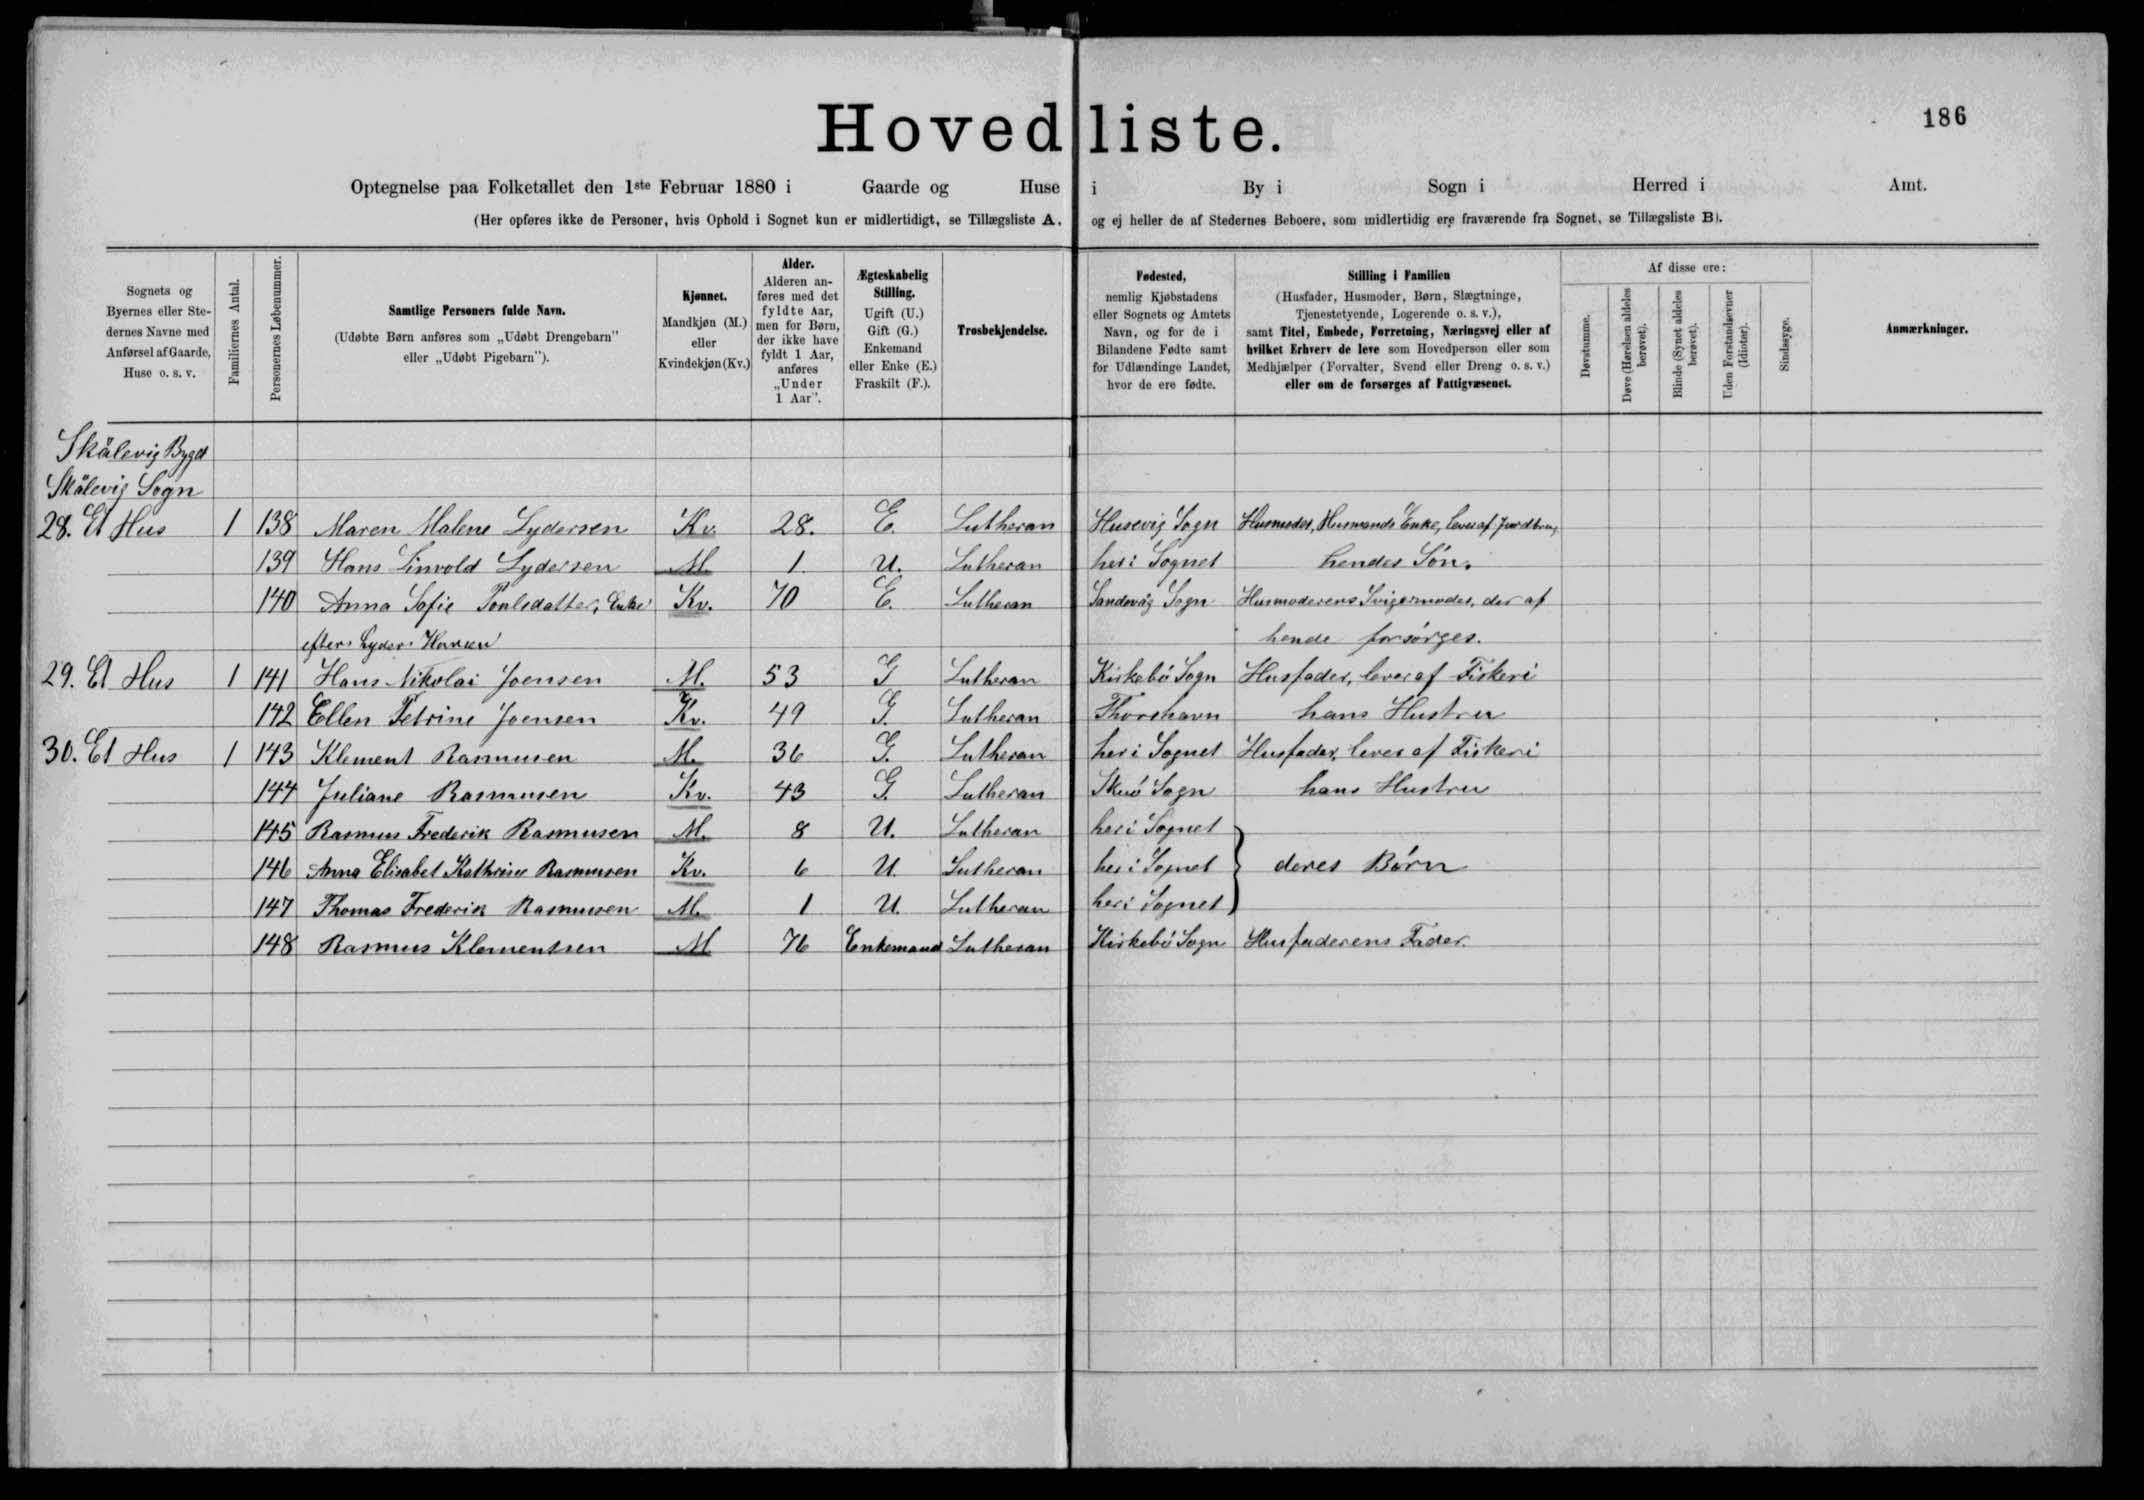 Hovedliste.
186
Optegnelse paa Folketallet den 1ste Februar 1880 i Gaarde og Huse i By i Sogn i Herred i Amt.
(Her opføres ikke de Personer, hvis Ophold i Sognet kun er midlertidigt, se Tillægsliste A, og ej heller de af Stedernes Beboere, som midlertidig ere fraværende fra Sognet, se Tillægsliste B).
Sognets og
Byernes eller Ste-
dernes Navne med
Anførsel af Gaarde,
Huse o. s. v.
Familiernes Antal.
Personernes Løbenummer.
Samtlige Personers fulde Navn.
(Udøbte Børn anføres som „Udøbt Drengebarn"
eller „Udøbt Pigebarn").
Kjønnet.
Mandkjøn (M.)
eller
Kvindekjøn (Kv.)
Alder.
Alderen an-
føres med det
fyldte Aar,
men for Børn,
der ikke have
fyldt 1 Aar,
anføres
„Under
1 Aar".
Ægteskabelig
Stilling.
Ugift (U.)
Gift (G.)
Enkemand
eller Enke (E.)
Fraskilt (F.).
Trosbekjendelse.
Fødested,
nemlig Kjøbstadens
eller Sognets og Amtets
Navn, og for de i
Bilandene Fødte samt
for Udlændinge Landet,
hvor de ere fødte.
Stilling i Familien
(Husfader, Husmoder, Børn, Slægtninge,
Tjenestetyende, Logerende o. s. v.),
samt Titel, Embede, Forretning, Næringsvej eller af
hvilket Erhverv de leve som Hovedperson eller som
Medhjælper (Forvalter, Svend eller Dreng o. s. v.)
eller om de forsørges af Fattigvæsenet.
Af disse ere:
Døvstumme.
Døve (Hørelsen aldeles
berøvet).
Blinde (Synet aldeles
berøvet).
Uden Forstandsevner
(Idioter).
Sindssyge.
Anmærkninger.
Skålevig Bygd
Skålevig Sogn
28. Et Hus 1 138 Maren Malene Lydersen Kv. 28. E. Lutheran Husevig Sogn Husmoder, Husmands Enke, lever af Jordbrug
139 Hans Linvold Lydersen M. 1. U. Lutheran her i Sognet hendes Søn.
140 Anna Sofie Poulsdatter, Enke Kv. 70 E. Lutheran Sandevåg Sogn Husmoderens Svigermoder, der af
efter Lyder Hansen hende forsørges.
29. Et Hus 1 141 Hans Nikolai Joensen M. 53 G Lutheran Kirkebø Sogn Husfader, lever af Fiskeri
142 Ellen Petrine Joensen Kv. 49 G. Lutheran Thorshavn hans Hustru
30. Et Hus 1 143 Klement Rasmusen M. 36 G. Lutheran her i Sognet Husfader, lever af Fiskeri
144 Juliane Rasmusen Kv. 43 G. Lutheran Skuø Sogn hans Hustru
145 Rasmus Frederik Rasmusen M. 8 U. Lutheran her i Sognet
146 Anna Elisabet Kathrine Rasmusen Kv. 6 U. Lutheran her i Sognet deres Børn
147 Thomas Frederik Rasmusen M. 1 U. Lutheran her i Sognet
148 Rasmus Klementsen M 76 Enkemand Lutheran Kirkebø Sogn Husfaderens Fader.